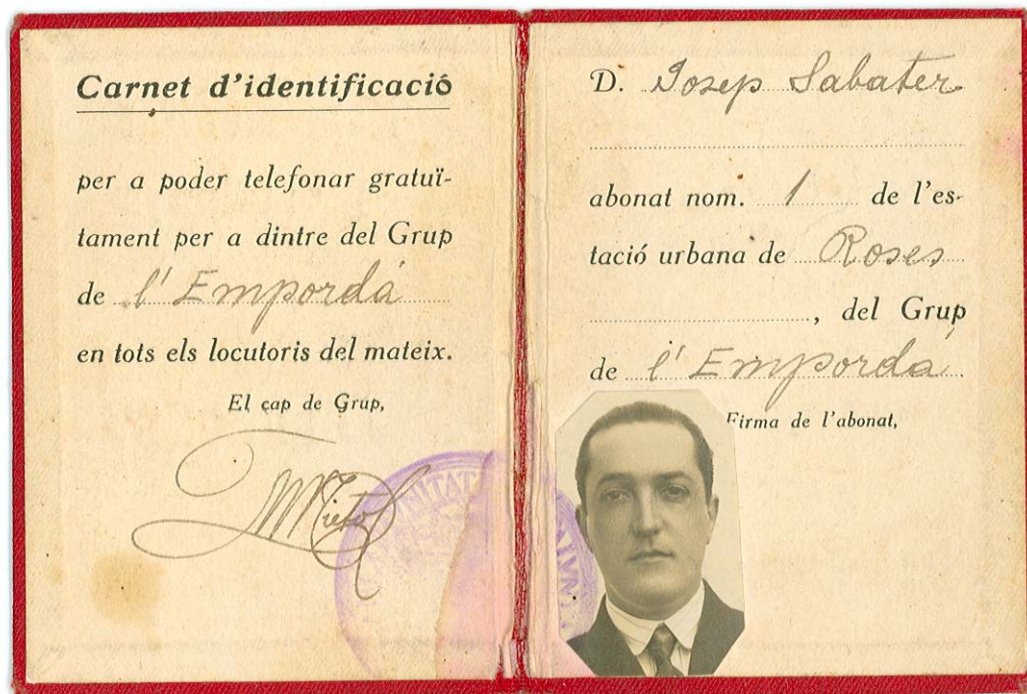 Carnet d'identificació
per a poder telefonar gratuï-
tament per a dintre del Grup
de l'Empordá
en tots els locutoris del mateix.
El cap de Grup,
D. Josep Sabater
abonat nom. 1 de l'es-
tació urbana de Roses
, del Grup
de l'Empordá
Firma de l'abonat,